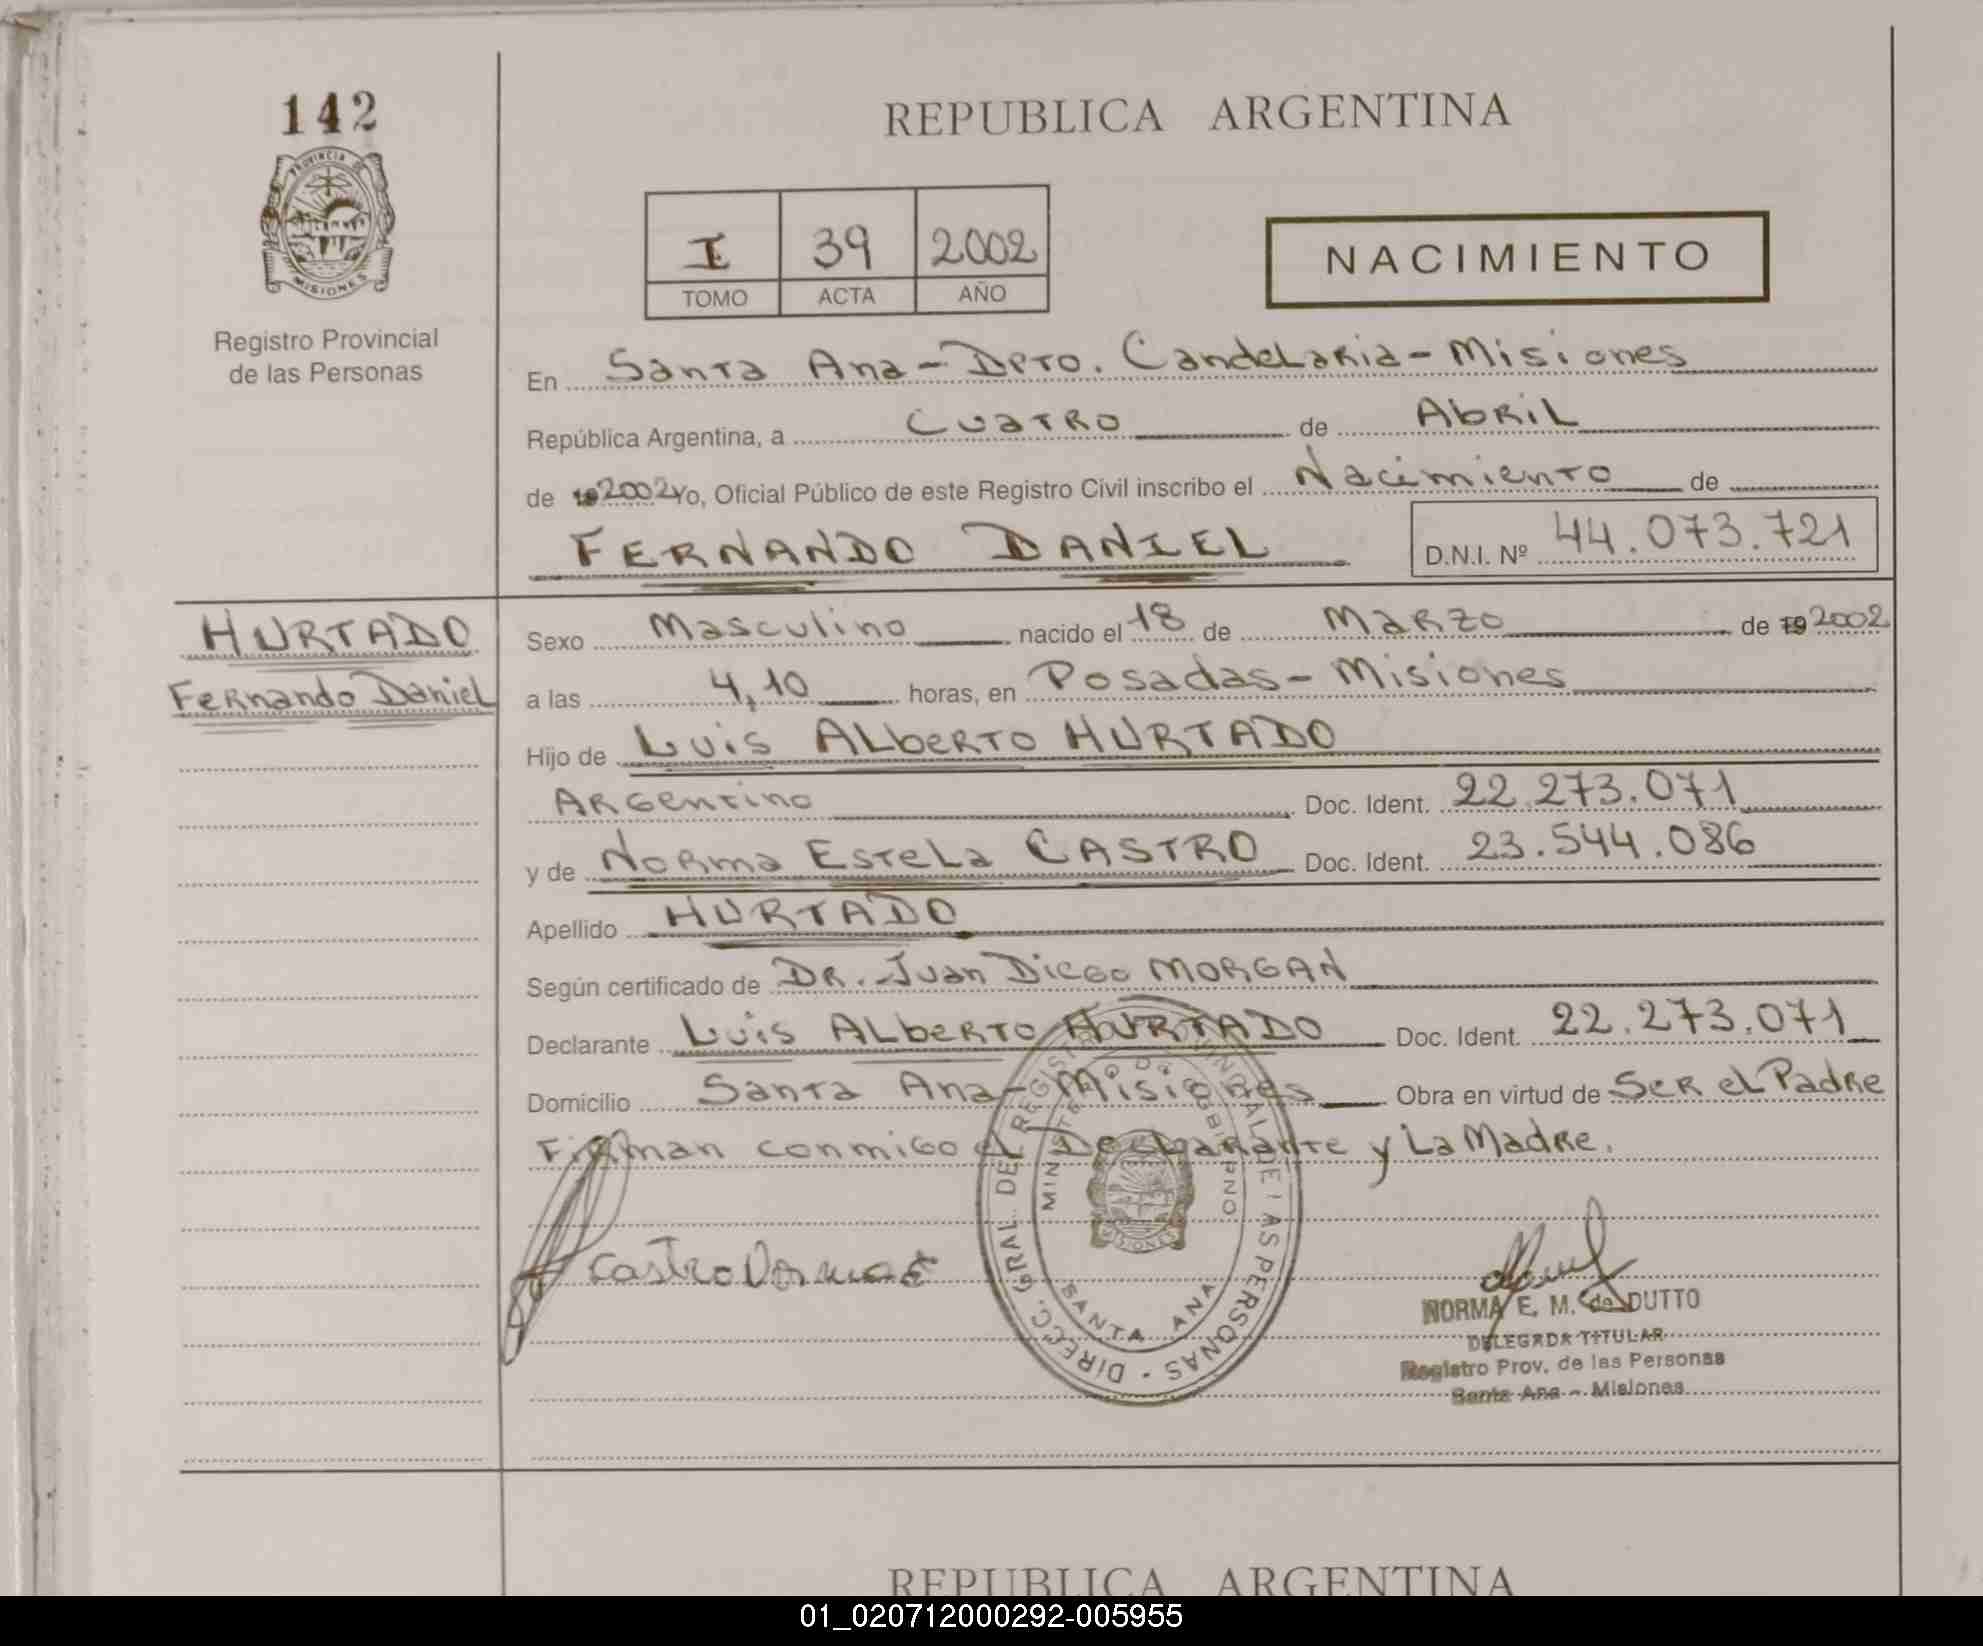 142
PROVINCIA DE
MISIONES
Registro Provincial
de las Personas
REPUBLICA ARGENTINA
I 39 2002
TOMO ACTA AÑO
NACIMIENTO
En Santa Ana - Dpto. Candelaria - Misiones
República Argentina, a Cuatro de Abril
de 19 2002 Yo, Oficial Público de este Registro Civil inscribo el Nacimiento de
FERNANDO DANIEL D.N.I. Nº 44.073.721
HURTADO
Fernando Daniel
Sexo Masculino nacido el 18 de Marzo de 19 2002
a las 4,10 horas, en Posadas - Misiones
Hijo de Luis Alberto HURTADO
Argentino Doc. Ident. 22.273.071
y de Norma Estela CASTRO Doc. Ident. 23.544.086
Apellido HURTADO
Según certificado de DR. Juan Diego MORGAN
Declarante Luis Alberto HURTADO Doc. Ident. 22.273.071
Domicilio Santa Ana - Misiones Obra en virtud de Ser el Padre
Firman conmigo el Declarante y La Madre.
DIRECC. GRAL. DEL REGISTRO PROVINCIAL DE LAS PERSONAS -
MINISTERIO DE GOBIERNO
MISIONES
SANTA ANA
Castro Norma E
NORMA E. M. de DUTTO
DELEGADA TITULAR
Registro Prov. de las Personas
Santa Ana - Misiones
REPUBLICA ARGENTINA
01_020712000292-005955